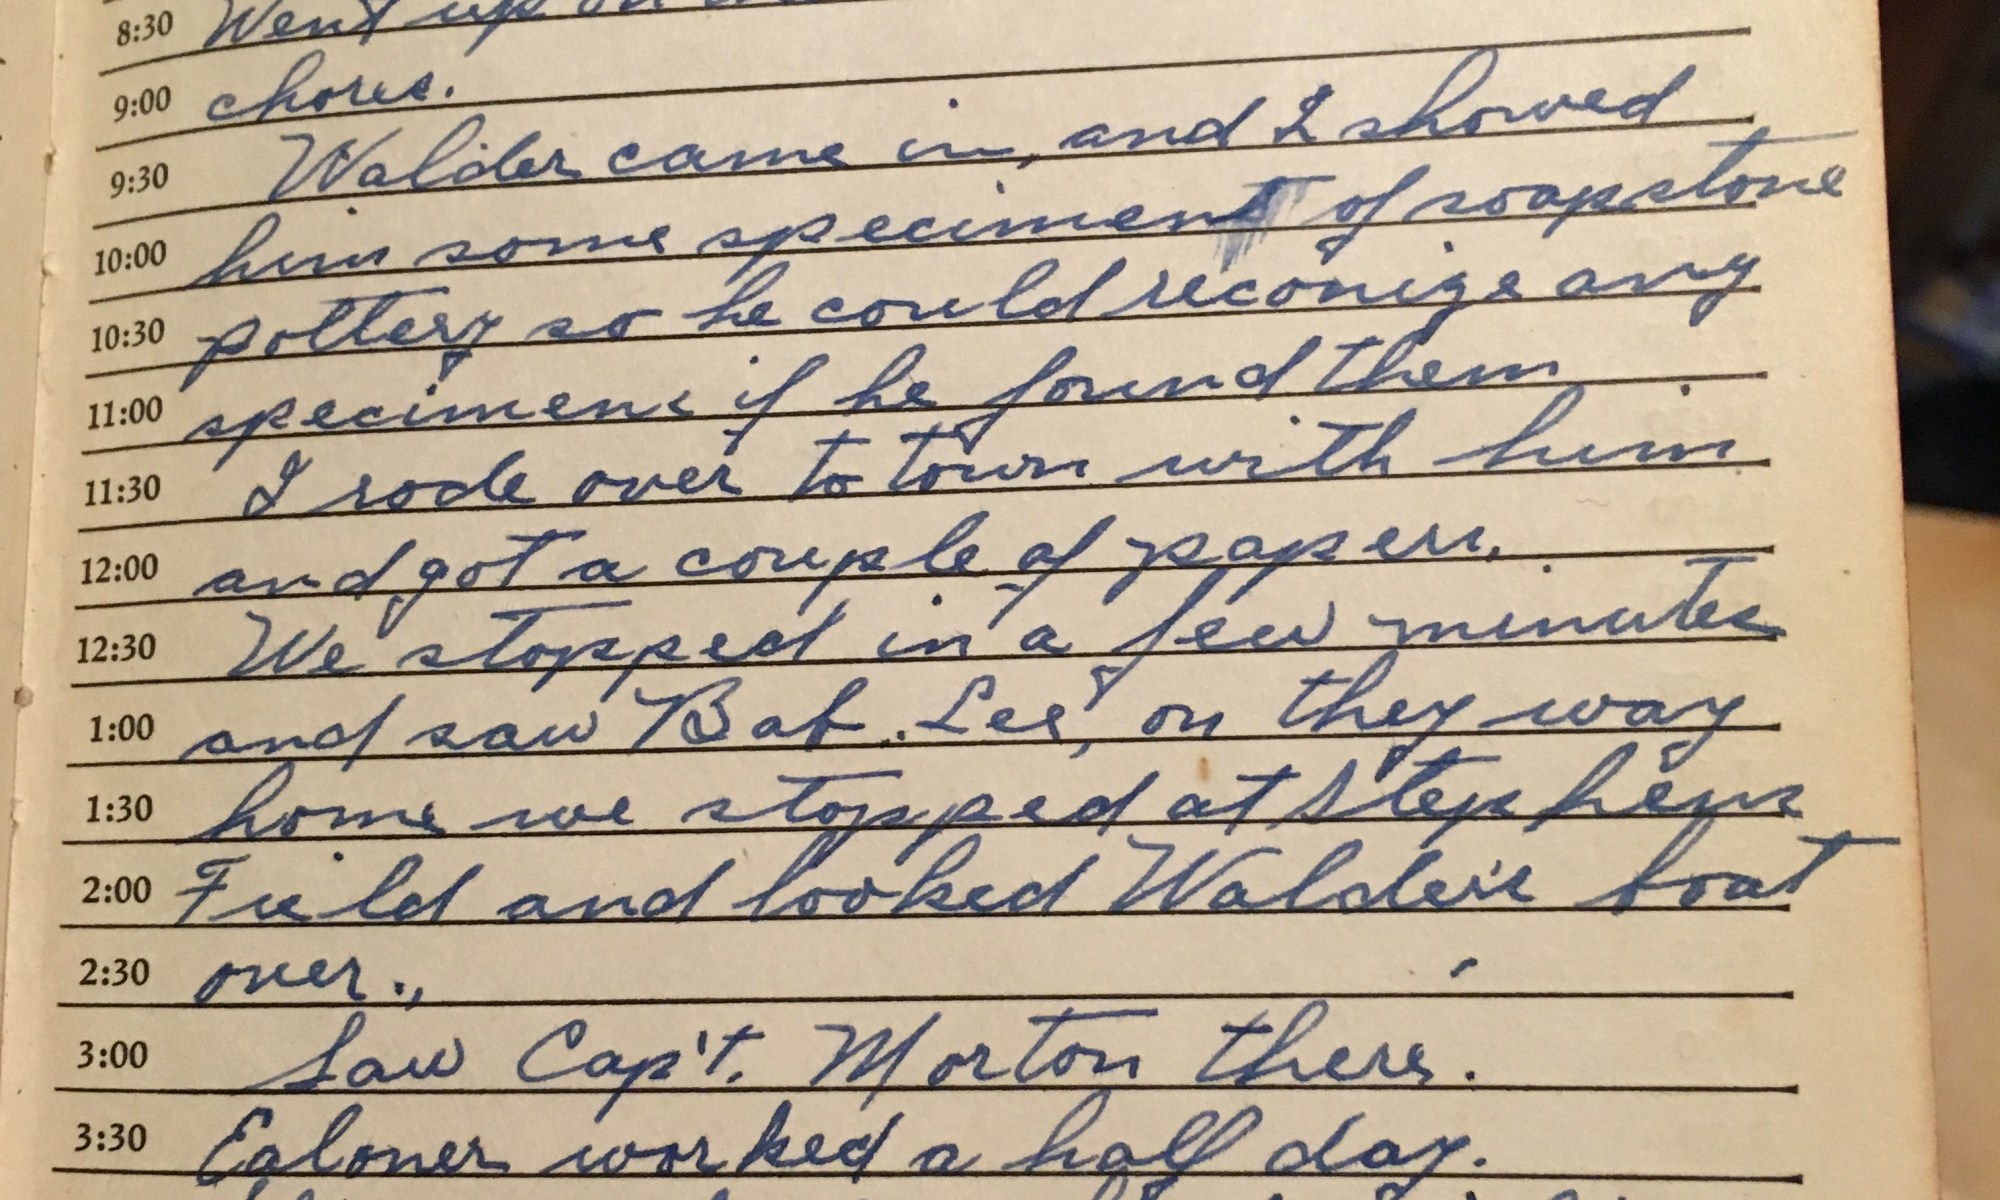 8:30 Went up on
9:00 chores.
9:30 Walder came in, and I showed
10:00 him some speciment of soapstone
10:30 pottery so he could reconize any
11:00 specimens if he found them
11:30 I rode over to town with him
12:00 and got a couple of papers.
12:30 We stopped in a few minutes
1:00 and saw Bab. Lee, on they way
1:30 home we stopped at Stephens
2:00 Field and looked Walder's boat
2:30 over.,
3:00 Saw Cap't. Morton there.
3:30 worked a half day.